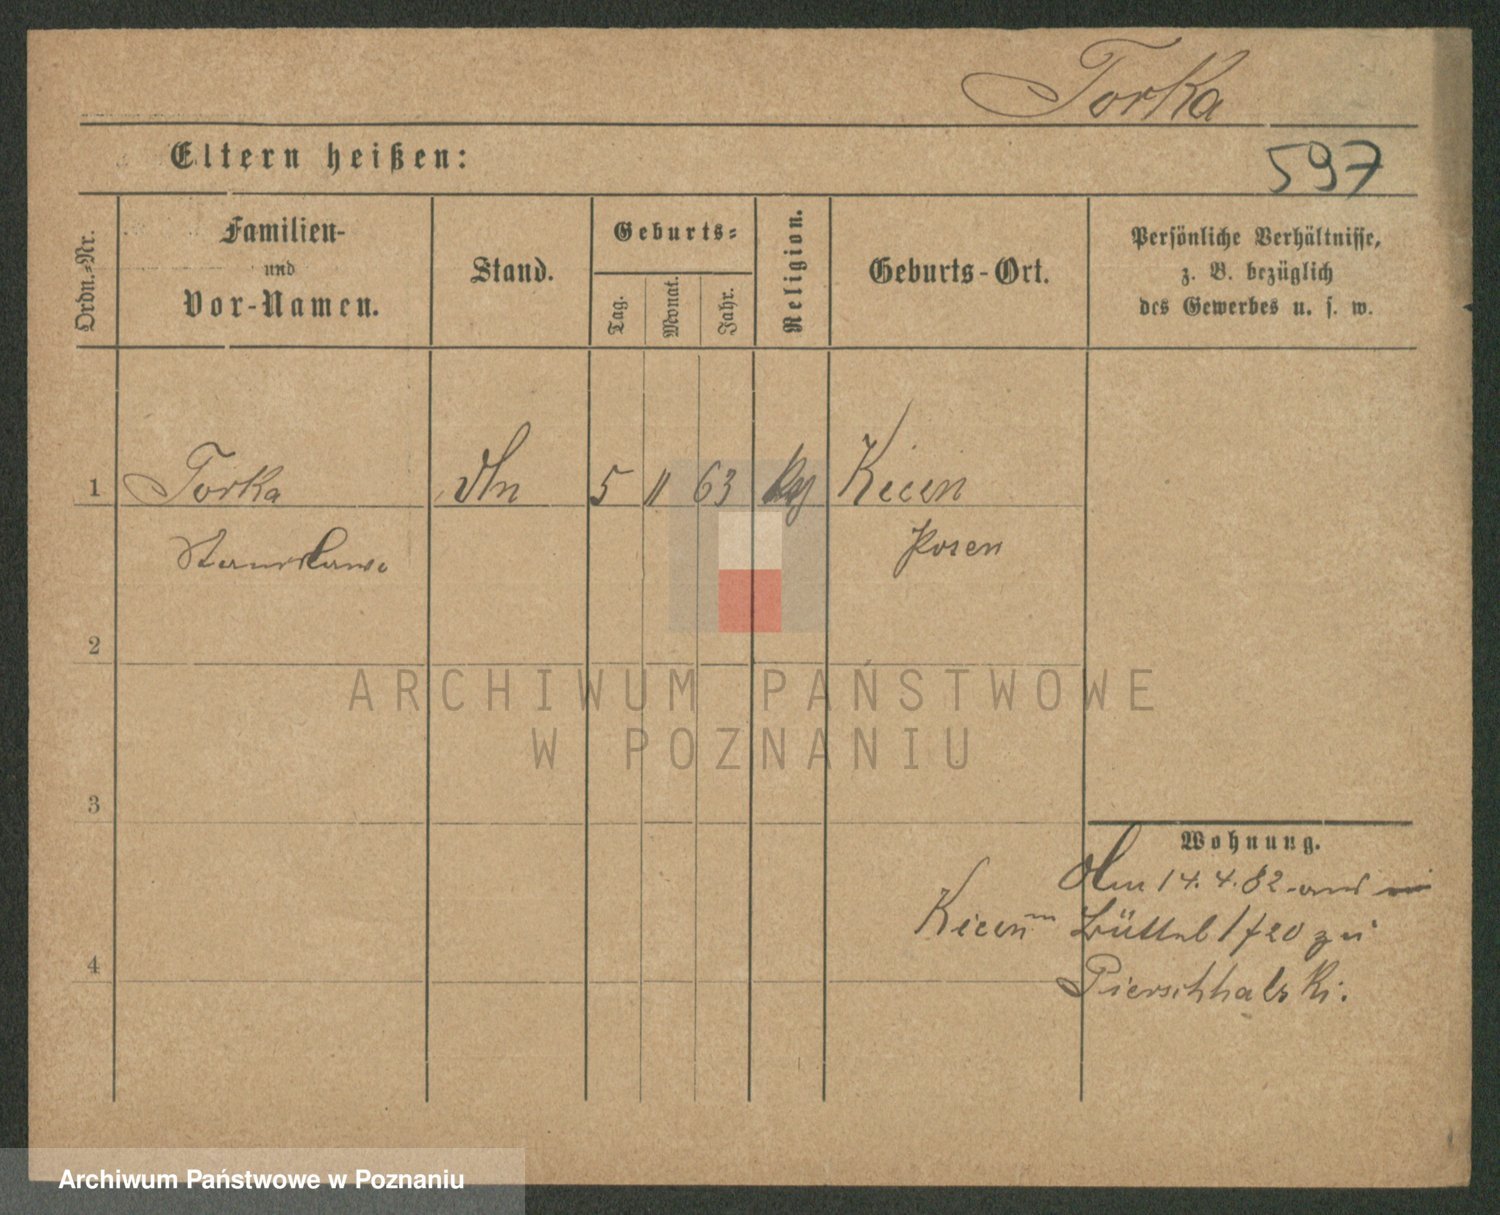 Torka
Eltern heißen:
597
Ordn.-Nr.
Familien-
und
Vor-Namen.
Stand.
Geburts-
Tag.
Monat.
Jahr.
Religion.
Geburts-Ort.
Persönliche Verhältnisse,
z. B. bezüglich
des Gewerbes u. s. w.
1 Torka 5 11 63 Kicin
Stanislawa Posen
2
ARCHIWUM PAŃSTWOWE
W POZNANIU
3
Wohnung.
14. 4. 82
Kicin Büttel 1720 zu
Pierschhalski.
4
Archiwum Państwowe w Poznaniu